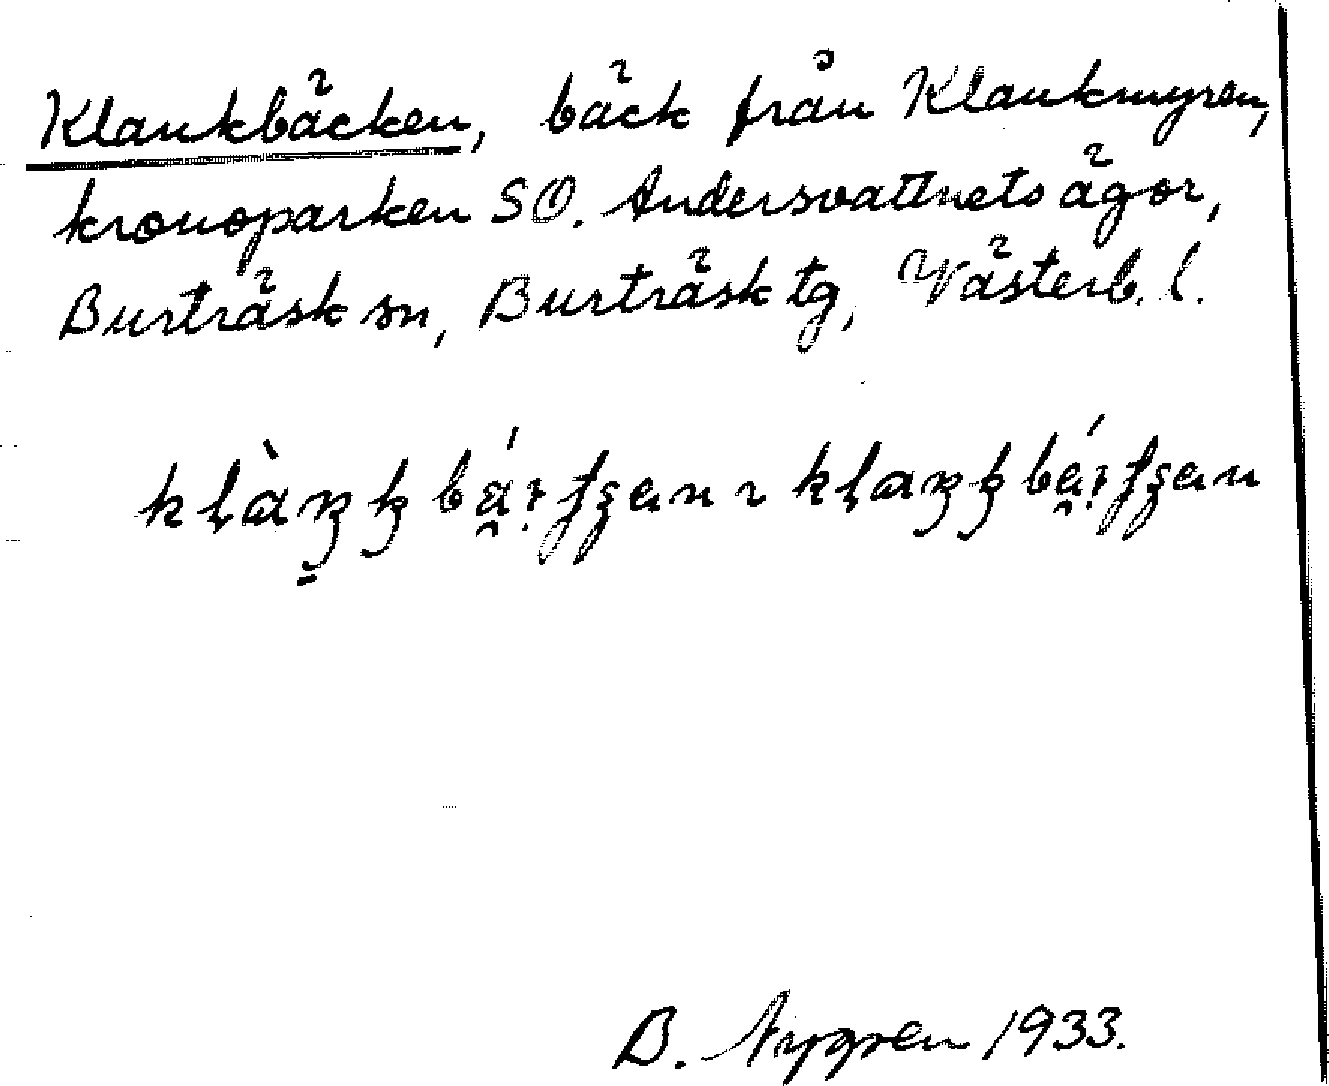 Klankbäcken, bäck från Klankmyren,
kronoparken SO. Andersvattnets ägor,
Burträsk sn, Burträsk tg, Västerb. l.
B. Nygren 1933.